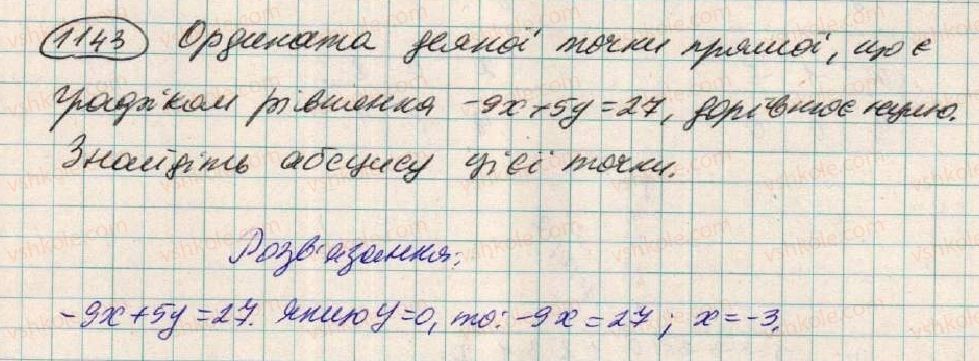 1143 Ордината деякої точки прямої, що є
графіком рівняння -9x+5y=27, дорівнює нулю.
Знайдіть абсцису цієї точки.
Розв'язання:
-9x+5y=27. Якщо y=0, то: -9x=27; x=-3.